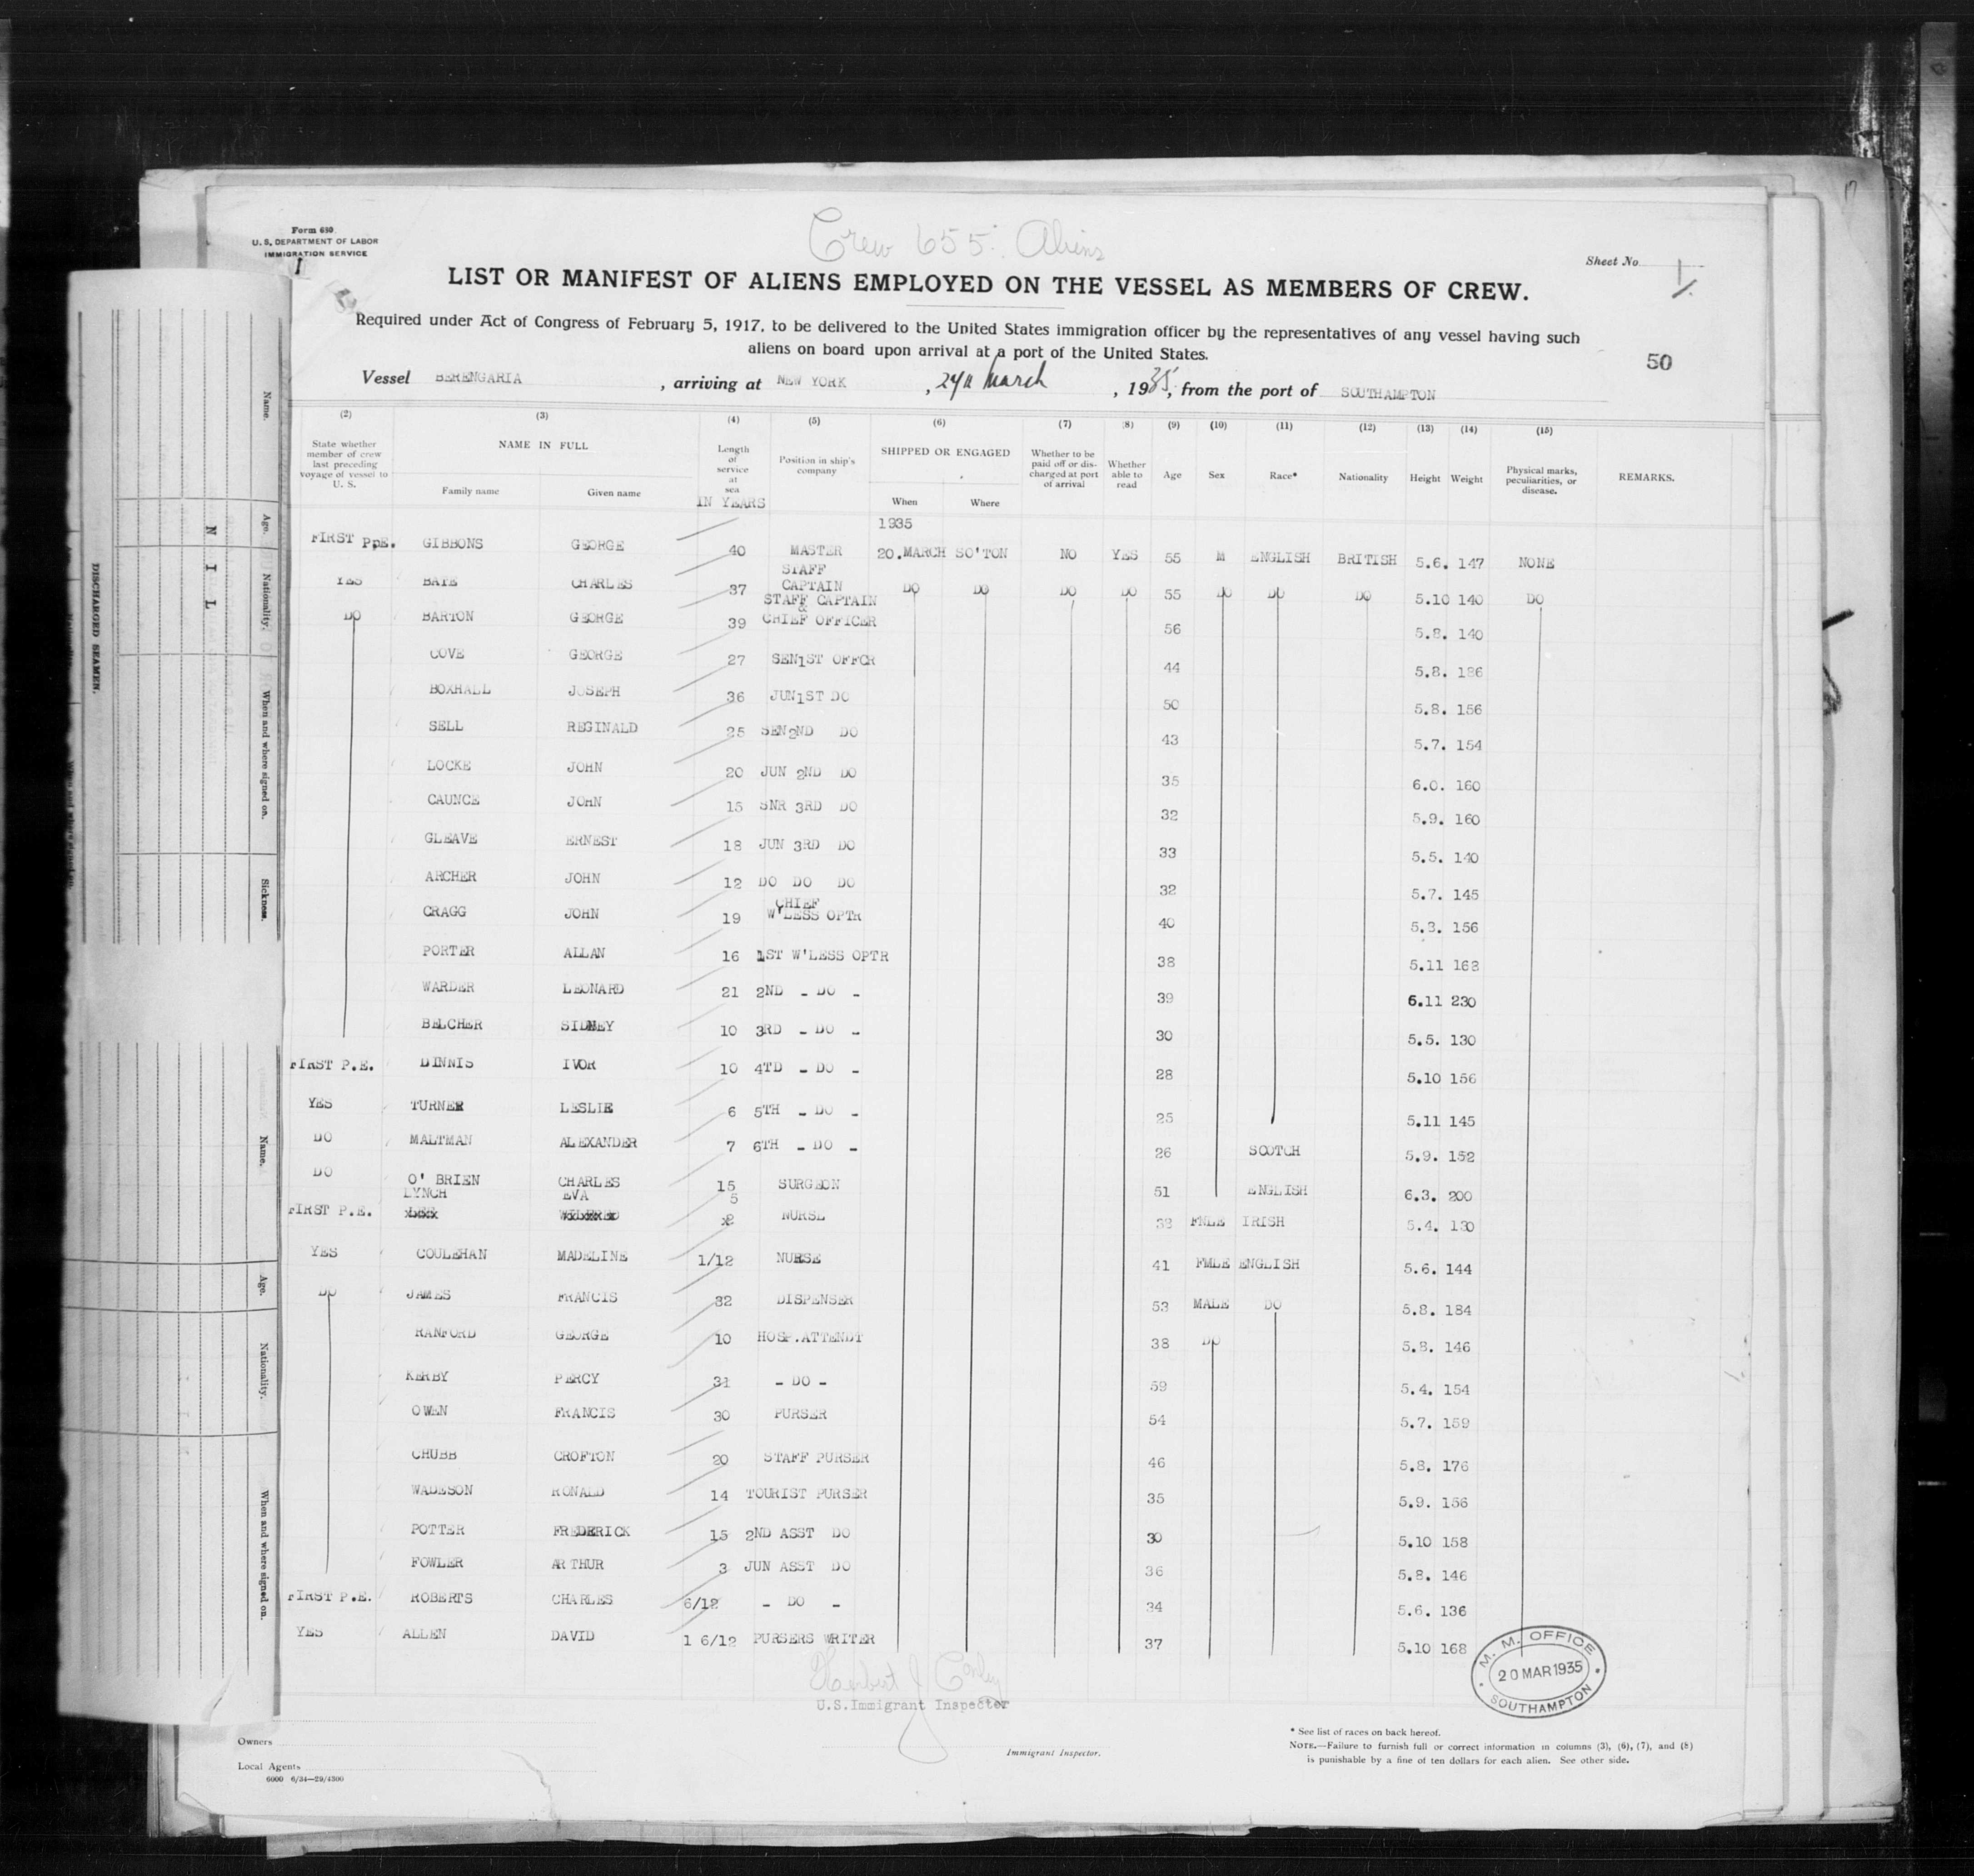 Form 680
U. S. DEPARTMENT OF LABOR
IMMIGRATION SERVICE
Crew 655: Aliens
Sheet No. 1
LIST OR MANIFEST OF ALIENS EMPLOYED ON THE VESSEL AS MEMBERS OF CREW.
Required under Act of Congress of February 5, 1917, to be delivered to the United States immigration officer by the representatives of any vessel having such
aliens on board upon arrival at a port of the United States.
50
Vessel BERENGARIA, arriving at NEW YORK, March, 1935, from the port of SOUTHAMPTON
(2) (3) (4) (5) (6) (7) (8) (9) (10) (11) (12) (13) (14) (15)
State whether member of crew last preceding voyage of vessel to U. S. NAME IN FULL Family name Given name Length of service at sea IN YEARS Position in ship's company SHIPPED OR ENGAGED When Where Whether to be paid off or discharged at port of arrival Whether able to read Age Sex Race* Nationality Height Weight Physical marks, peculiarities, or disease. REMARKS.
1935
FIRST PPE. GIBBONS GEORGE 40 MASTER 20.MARCH SO'TON NO YES 55 M ENGLISH BRITISH 5.6. 147 NONE
YES BATE CHARLES 37 STAFF CAPTAIN DO DO DO DO 55 DO DO DO 5.10 140 DO
DO BARTON GEORGE 39 STAFF CAPTAIN & CHIEF OFFICER 56 5.8. 140
COVE GEORGE 27 SEN1ST OFFCR 44 5.8. 186
BOXHALL JOSEPH 36 JUN1ST DO 50 5.8. 156
SELL REGINALD 25 SEN2ND DO 43 5.7. 154
LOCKE JOHN 20 JUN 2ND DO 35 6.0. 160
CAUNCE JOHN 15 SNR 3RD DO 32 5.9. 160
GLEAVE ERNEST 18 JUN 3RD DO 33 5.5. 140
ARCHER JOHN 12 DO DO DO 32 5.7. 145
CRAGG JOHN 19 CHIEF W'LESS OPTR 40 5.3. 156
PORTER ALLAN 16 1ST W'LESS OPTR 38 5.11 168
WARDER LEONARD 21 2ND - DO - 39 6.11 230
BELCHER SIDNEY 10 3RD - DO - 30 5.5. 130
FIRST P.E. DINNIS IVOR 10 4TD - DO - 28 5.10 156
YES TURNER LESLIE 6 5TH - DO - 25 5.11 145
DO MALTMAN ALEXANDER 7 6TH - DO - 26 SCOTCH 5.9. 152
DO O' BRIEN CHARLES 15 SURGEON 51 ENGLISH 6.3. 200
LYNCH EVA 5
FIRST P.E. NURSE FMLE IRISH 5.4. 130
YES COULEHAN MADELINE 1/12 NURSE 41 FMLE ENGLISH 5.6. 144
DO JAMES FRANCIS 32 DISPENSER 53 MALE DO 5.8. 184
RANFORD GEORGE 10 HOSP.ATTENDT 38 DO 5.8. 146
KERBY PERCY 31 - DO - 59 5.4. 154
OWEN FRANCIS 30 PURSER 54 5.7. 159
CHUBB CROFTON 20 STAFF PURSER 46 5.8. 176
WADESON RONALD 14 TOURIST PURSER 35 5.9. 156
POTTER FREDERICK 15 2ND ASST DO 30 5.10 158
FOWLER ARTHUR 3 JUN ASST DO 36 5.8. 146
FIRST P.E. ROBERTS CHARLES 6/12 - DO - 34 5.6. 136
YES ALLEN DAVID 1 6/12 PURSERS WRITER 37 5.10 168
M. M. OFFICE
20 MAR 1935
SOUTHAMPTON
Herbert J
U.S.Immigrant Inspector
Immigrant Inspector.
Owners
Local Agents
6000 6/34—29/4300
* See list of races on back hereof.
NOTE.—Failure to furnish full or correct information in columns (3), (6), (7), and (8)
is punishable by a fine of ten dollars for each alien. See other side.
DISCHARGED SEAMEN.
Name. Age. Nationality. When and where signed on. Sickness.
N I L
Name. Age. Nationality. When and where signed on.